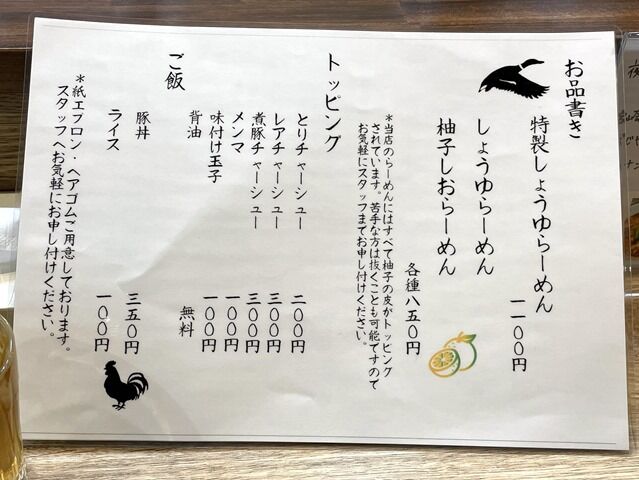 お品書き
特製しょうゆらーめん 一一〇〇円
しょうゆらーめん
柚子しおらーめん
各種八五〇円
*当店のらーめんにはすべて柚子の皮がトッピング
されています。苦手な方は抜くことも可能ですので
お気軽にスタッフまでお申し付けください。
トッピング
とりチャーシュー 二〇〇円
レアチャーシュー 三〇〇円
煮豚チャーシュー 三〇〇円
メンマ 一〇〇円
味付け玉子 一〇〇円
背油 無料
ご飯
豚丼 三五〇円
ライス 一〇〇円
*紙エプロン・ヘアゴムご用意しております。
スタッフへお気軽にお申し付けください。